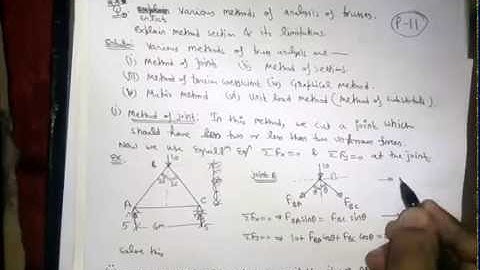 various methods of analysis of trusses.
Explain method section & its limitations.
P-11
Solution: Various methods of truss analysis are —
(i) Method of Joint (ii) Method of sections.
(iii) Method of tension coefficient (iv) Graphical method.
(v) Matrix Method (vi) Unit load Method (Method of substitute)
(i) Method of Joint: In this method, we cut a joint which
should have two or less than two unknown forces.
Now we use Equilm Eqn ΣFx=0 & ΣFy=0 at the joint.
Ex.
10
B
A
C
5
6m
5
Joint B
10
FBA
FBC
ΣFx=0 ⇒ FBA sinθ = FBC sinθ
ΣFy=0 ⇒ 10+ FBA cosθ + FBC cosθ =
Solve this